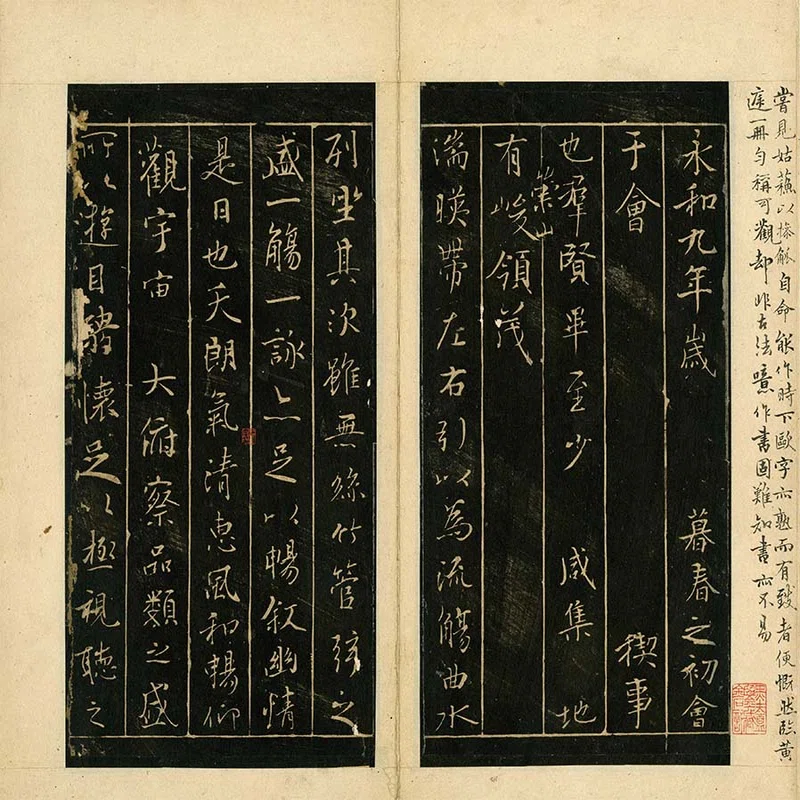 嘗見姑蘓以操觚自命能作時下歐字亦熟而有致者便慨然臨黃
庭一冊勻稱可觀却非古法噫作書固難知書亦不易
永和九年歲 暮春之初會
于會 稧事
也羣賢畢至少 咸集 地
有崇山峻領茂
湍暎帶左右引以為流觴曲水
列坐其次雖無絲竹管弦之
盛一觴一詠亦足以暢敘幽情
是日也天朗氣清惠風和暢仰
觀宇宙 大俯察品類之盛
所以遊目騁懷足以極視聽之